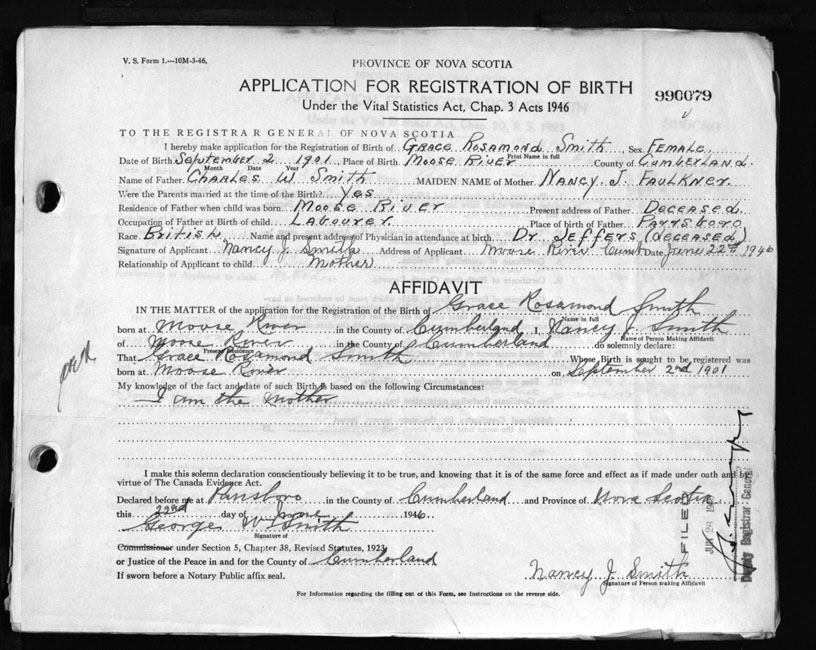 V. S. Form 1.—10M-3-46,
PROVINCE OF NOVA SCOTIA
APPLICATION FOR REGISTRATION OF BIRTH
990079
Under the Vital Statistics Act, Chap. 3 Acts 1946
TO THE REGISTRAR GENERAL OF NOVA SCOTIA
I hereby make application for the Registration of Birth of Grace Rosamond Smith, Sex Female.
Print Name in full
Date of Birth September 2 1901 Place of Birth Moose River County of Cumberland.
Month Date Year
Name of Father Charles W Smith MAIDEN NAME of Mother Nancy J. Faulkner.
Were the Parents married at the time of the Birth? Yes
Residence of Father when child was born Moose River Present address of Father Deceased
Occupation of Father at Birth of child Labourer. Place of birth of Father Parrsboro
Race British Name and present address of Physician in attendance at birth Dr Jeffers (deceased)
Signature of Applicant Nancy J. Smith Address of Applicant Moose River Cumb Date June 22nd 1946
Relationship of Applicant to child Mother
AFFIDAVIT
IN THE MATTER of the application for the Registration of the Birth of Grace Rosamond Smith
Name in full
born at Moose River in the County of Cumberland I, Nancy J. Smith
Name of Person Making Affidavit
of Moose River in the County of Cumberland do solemnly declare:
Present Residence
That Grace Rosamond Smith Whose Birth is sought to be registered was
born at Moose River on September 2nd 1901
My knowledge of the fact and date of such Birth is based on the following Circumstances:
I am the Mother
I make this solemn declaration conscientiously believing it to be true, and knowing that it is of the same force and effect as if made under oath and by
virtue of The Canada Evidence Act.
Declared before me at Parrsboro in the County of Cumberland and Province of Nova Scotia
this 22nd day of June 1946
George W Smith
Signature of
Commissioner under Section 5, Chapter 38, Revised Statutes, 1923
or Justice of the Peace in and for the County of Cumberland
If sworn before a Notary Public affix seal.
Nancy J. Smith
Signature of Person making Affidavit
For Information regarding the filling out of this Form, see Instructions on the reverse side.
FILED
Deputy Registrar General